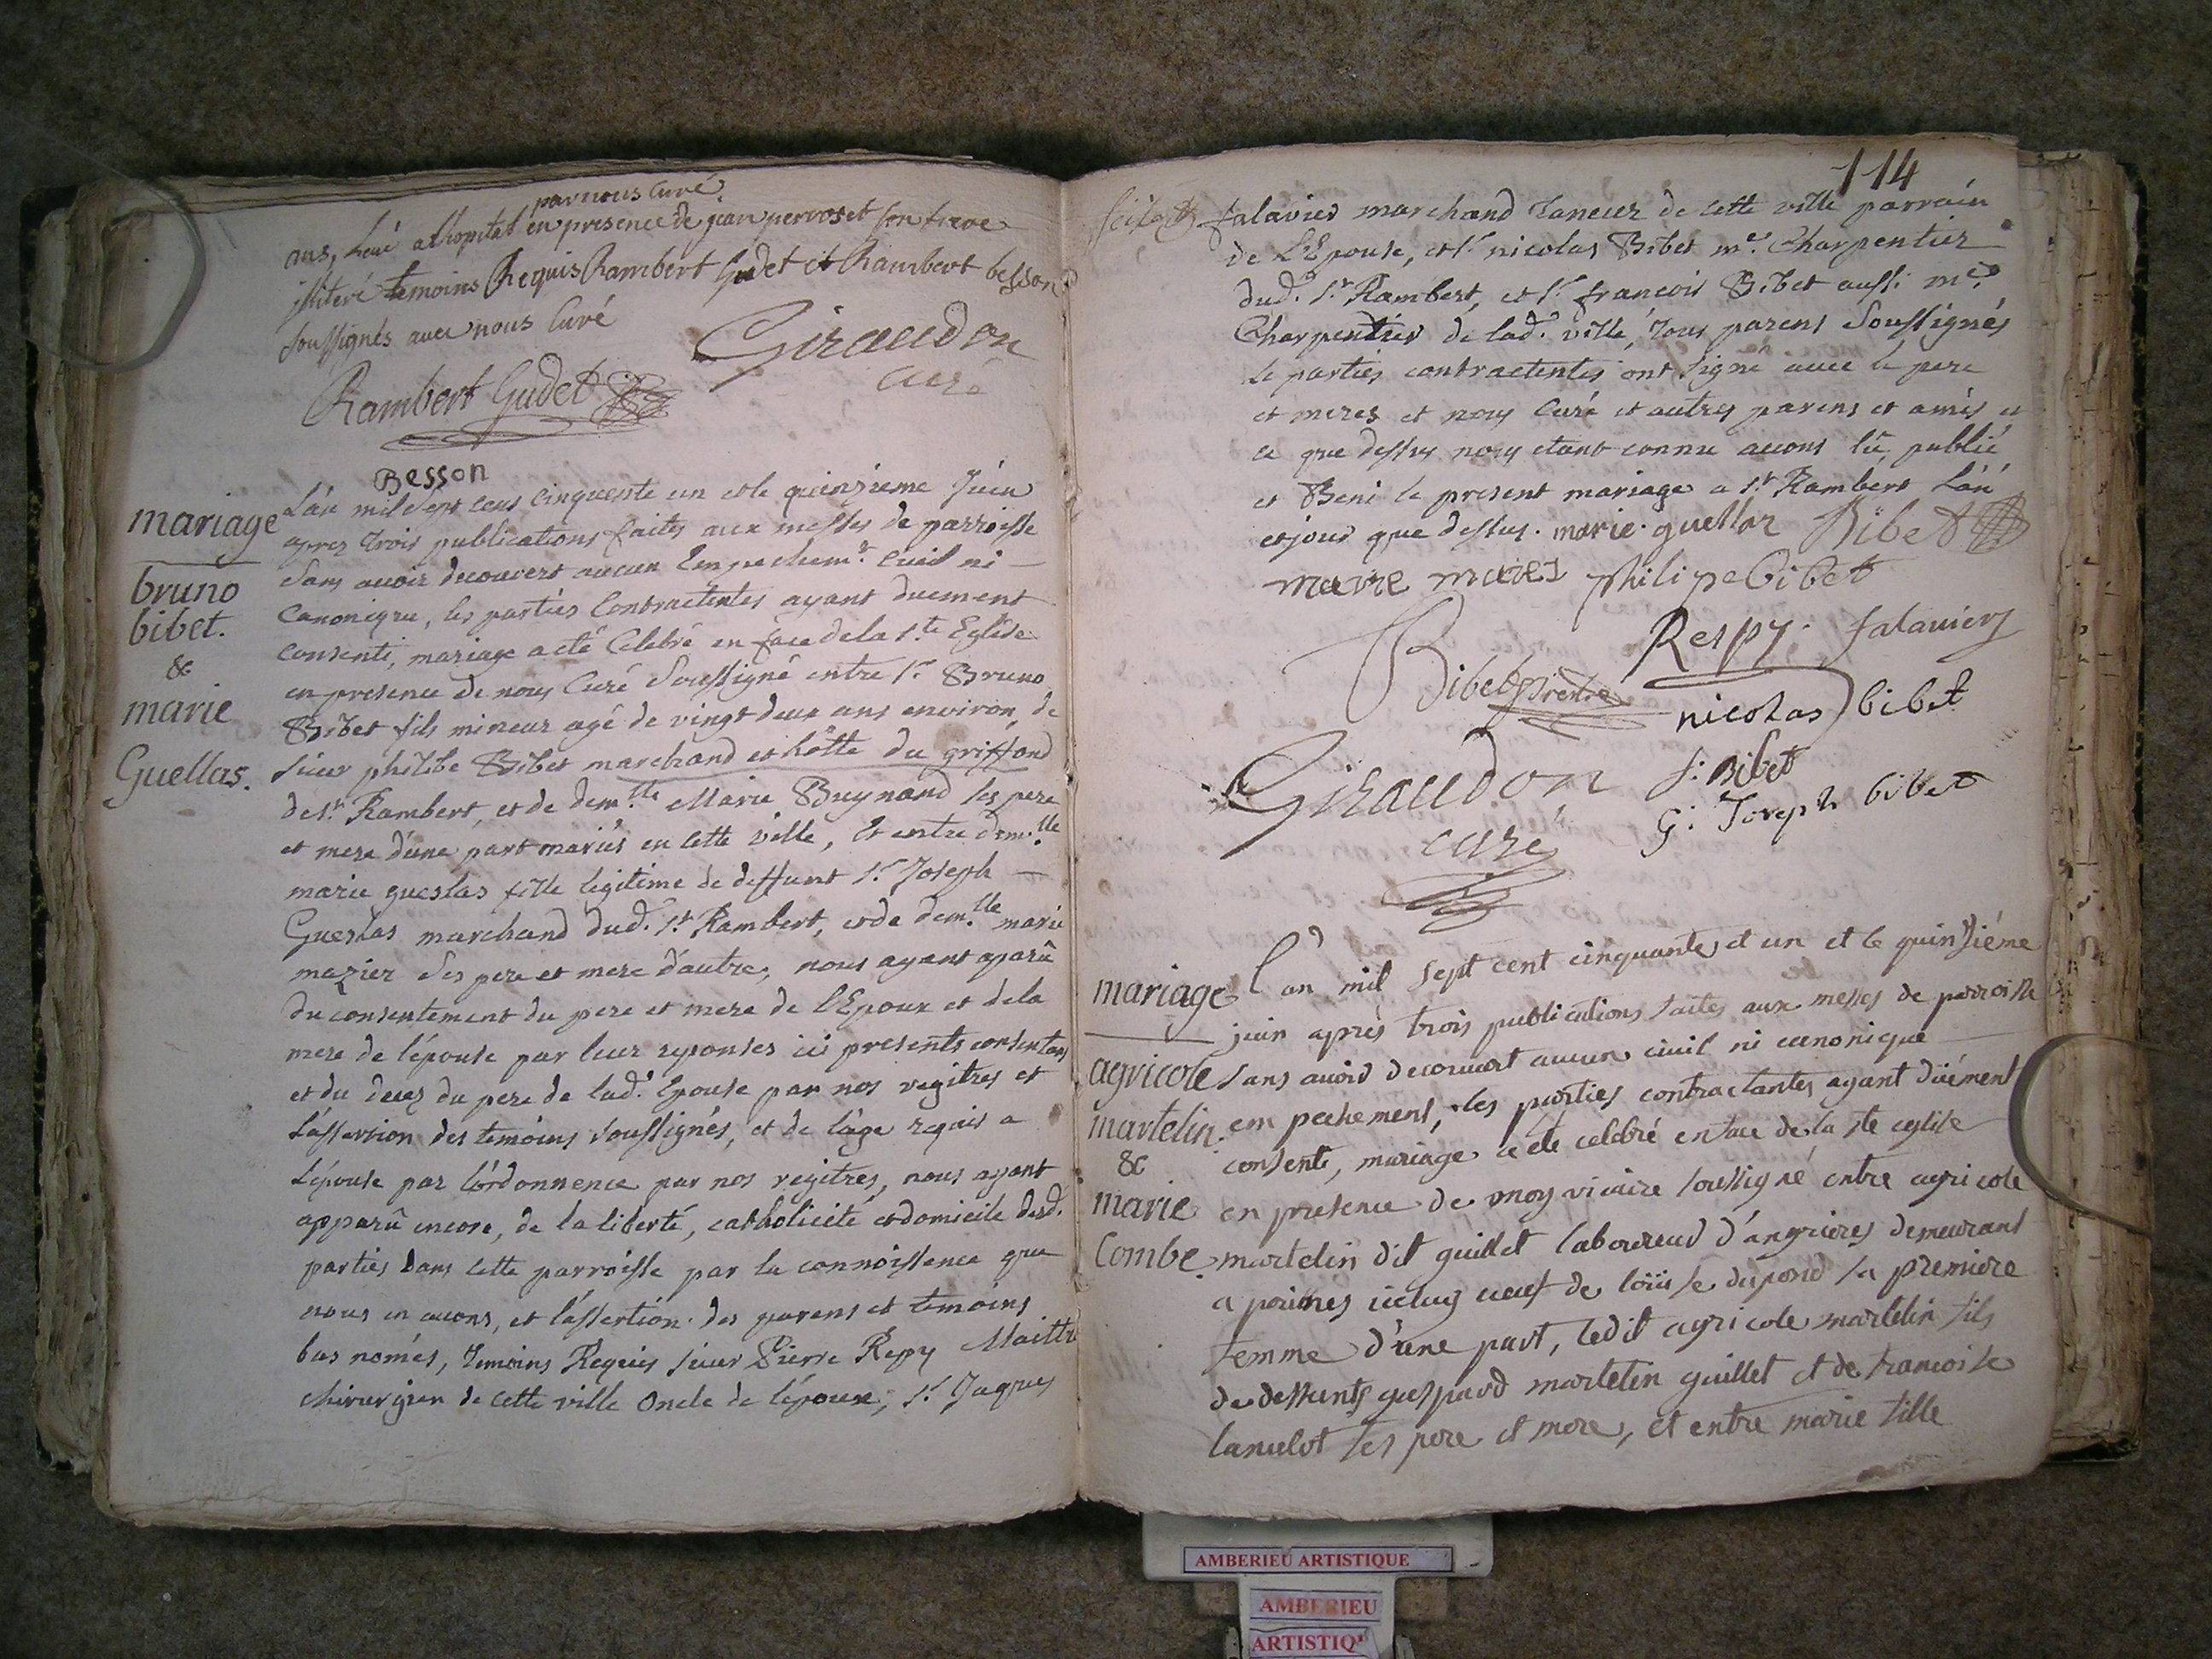 par nous curé
ans, levé a l'hopital en presence de jean perroset son frere
illiteré temoins Requis Rambert Gudet et Rambert besson
soussignés avec nous Curé
Giraudon
curé
Rambert Gudet
Besson
mariage
bruno
bibet.
&
marie
Guellas.
L'an mil sept cens cinquente un et le quinzieme Juin
aprez trois publications faites aux messes de parroisse
sans avoir decouvert aucun Empechem.t Civil ni
Canonique, les parties Contractentes ayant duement
consenti, mariage a eté Celebré en face de la S.te Eglise
en presence de nous Curé Soussigné entre S.r Bruno
Bibet fils mineur agé de vingt deux ans environ, de
sieur philibe Bibet marchand et hôtte du griffond
de S.t Rambert, et de dem.lle Marie Buynand ses pere
et mere d'une part mariés en cette ville, Et entre dem.lle
marie gueslas fille legitime de deffunt S.r Joseph
Gueslas marchand dud. S.t Rambert, et de dem.lle marie
mazier Ses pere et mere d'autre, nous ayant aparû
du consentement du pere et mere de l'Epoux et de la
mere de l'épouse par leur reponses ici presents consentans
et du decez du pere de lad. Epouse par nos regitres et
l'assertion des temoins soussignés, et de l'âge requis a
l'épouse par l'ordonnence par nos regitres, nous ayant
apparû encore, de la liberté, catholicité et domicile desd.
parties dans cette parroisse par la connoissence que
nous en avons, et l'assertion des parens et temoins
bas només, temoins Requis sieur Pierre Repy Maittre
chirurgien de cette ville oncle de l'époux, S.r Jaques
114
falavier marchand taneur de cette ville parrain
de l'Epouse, et S.r nicolas Bibet m.e Charpentier
dud. S.t Rambert, et S.r francois Bibet aussi m.e
Charpentier de lad. ville, tous parens Soussignés
le parties contractentes ont signé avec le pere
et meres et nous Curé et autres parens et amis et
ce que dessus nous etant connu avons lû, publié
et Beni le present mariage a S.t Rambert L'an
et jour que dessus. marie guellaz Bibet
philipe bibet
Respy. falavier
Bibet prestre
nicolas bibet
Giraudon
curé
f: Bibet
G: Joseph bibet
mariage
agricole
martelin
&
marie
Combe
l'an mil sept cent cinquante et un et le quinzième
juin après trois publications faites aux messes de parroisse
sans avoir decouvert aucun civil ni canonique
empechement, les parties contractantes ayant düement
consenti, mariage a eté celebré en face de la ste eglise
en presence de moy vicaire soussigné entre agricole
martelin dit guillet laboureur d'angrieres demeurant
a veuf de loüise sa premiere
femme d'une part, ledit agricole martelin fils
de deffunts gaspard martelin guillet et de francoise
lancelot ses pere et mere, et entre marie fille
AMBERIEU ARTISTIQUE
AMBERIEU
ARTISTIQ